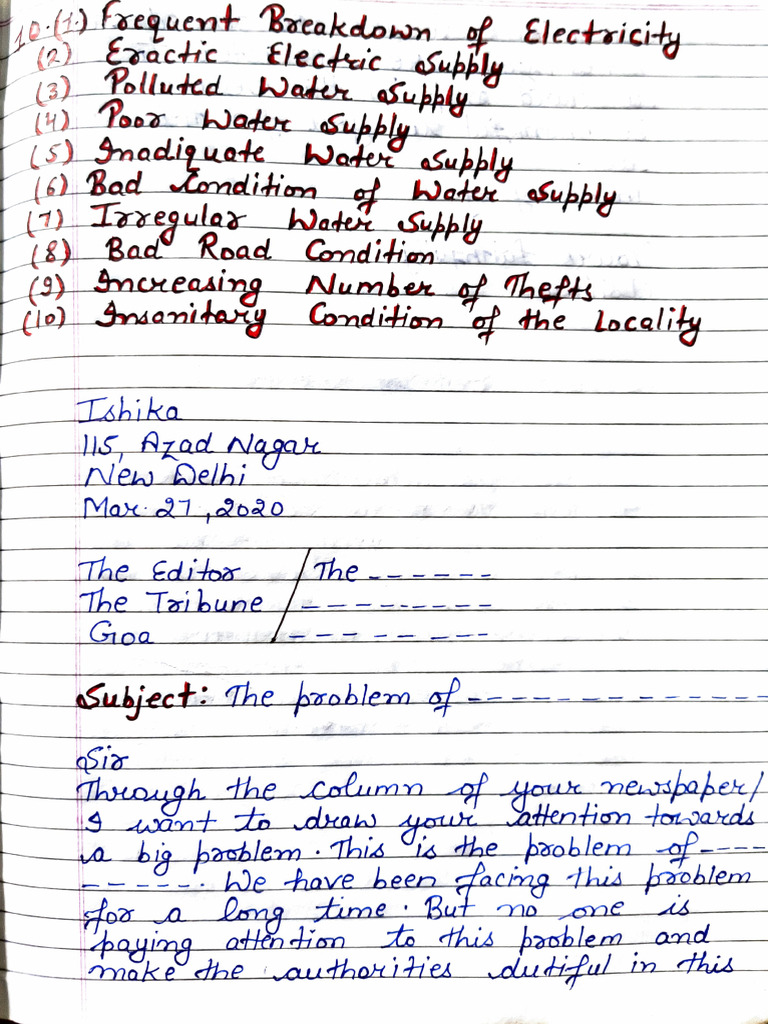 10.(1.) Frequent Breakdown of Electricity
(2) Eractic Electric Supply
(3) Polluted Water Supply
(4) Poor Water Supply
(5) Inadiquate Water Supply
(6) Bad Condition of Water Supply
(7) Irregular Water Supply
(8) Bad Road Condition
(9) Increasing Number of Thefts
(10) Insanitary Condition of the Locality
Ishika
115, Azad Nagar
New Delhi
Mar. 27, 2020
The Editor / The ------
The Tribune / ---------
Goa / --------
Subject: The problem of --------------
Sir
Through the column of your newspaper/
I want to draw your attention towards
a big problem. This is the problem of ----
------. We have been facing this problem
for a long time. But no one is
paying attention to this problem and
make the authorities dutiful in this